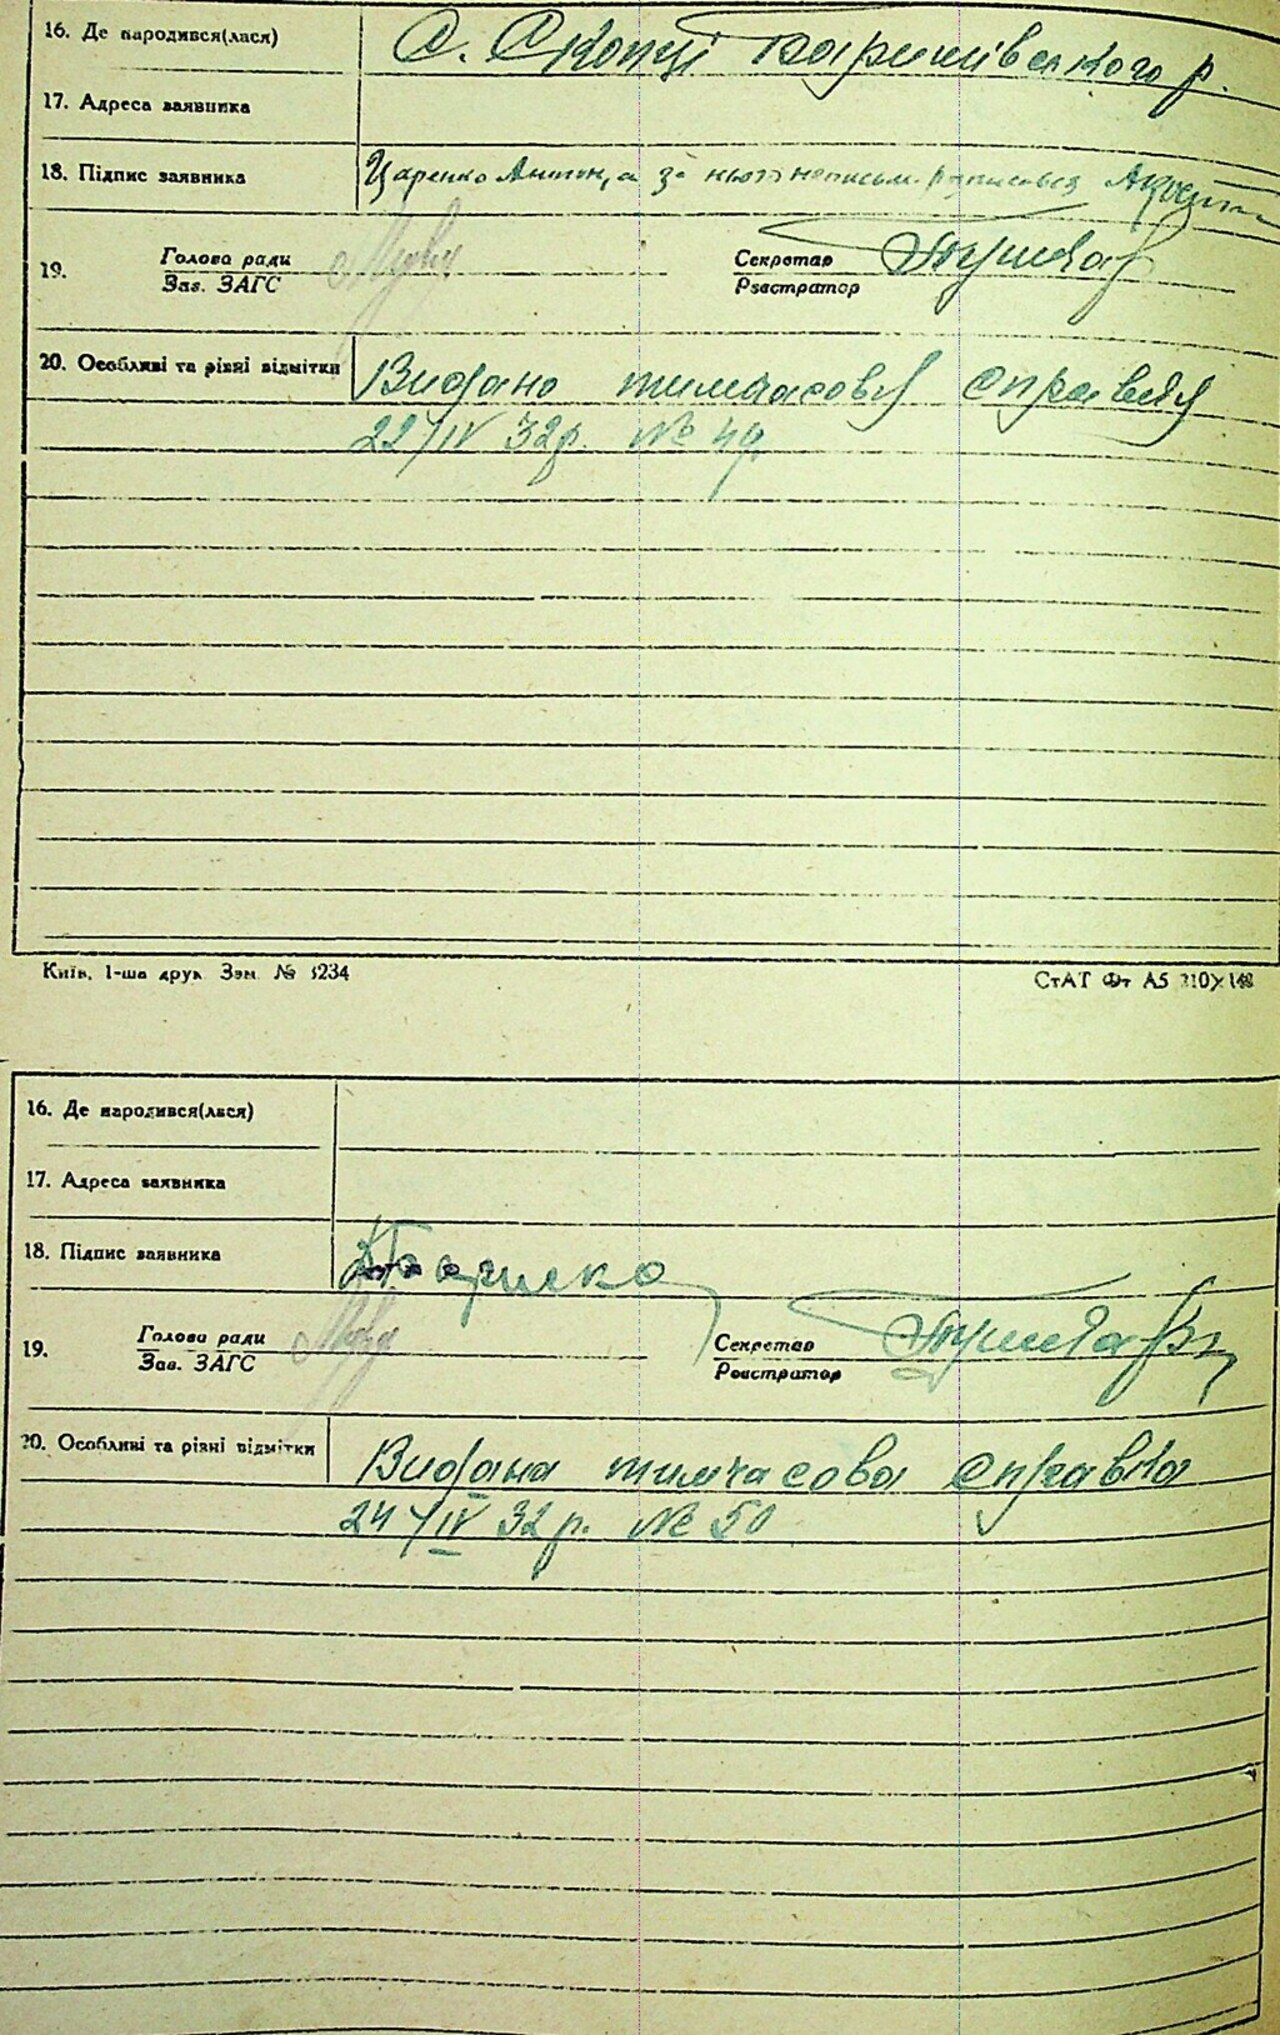 16. Де народився(лася) с. Скопці Баришівського р.
17. Адреса заявника
18. Підпис заявника Царенко Антон, а за нього неписьм. розписався
19. Голова ради Секретар
Зав. ЗАГС Реєстратор
20. Особливі та різні відмітки Видано тимчасову
22/IV 32р. № 49
Київ, 1-ша друк. Зам. № 3234 СтАТ Фт А5 210×148
16. Де народився(лася)
17. Адреса заявника
18. Підпис заявника
19. Голова ради Секретар
Зав. ЗАГС Реєстратор
20. Особливі та різні відмітки Видана тимчасова справка
24/IV 32р. № 50